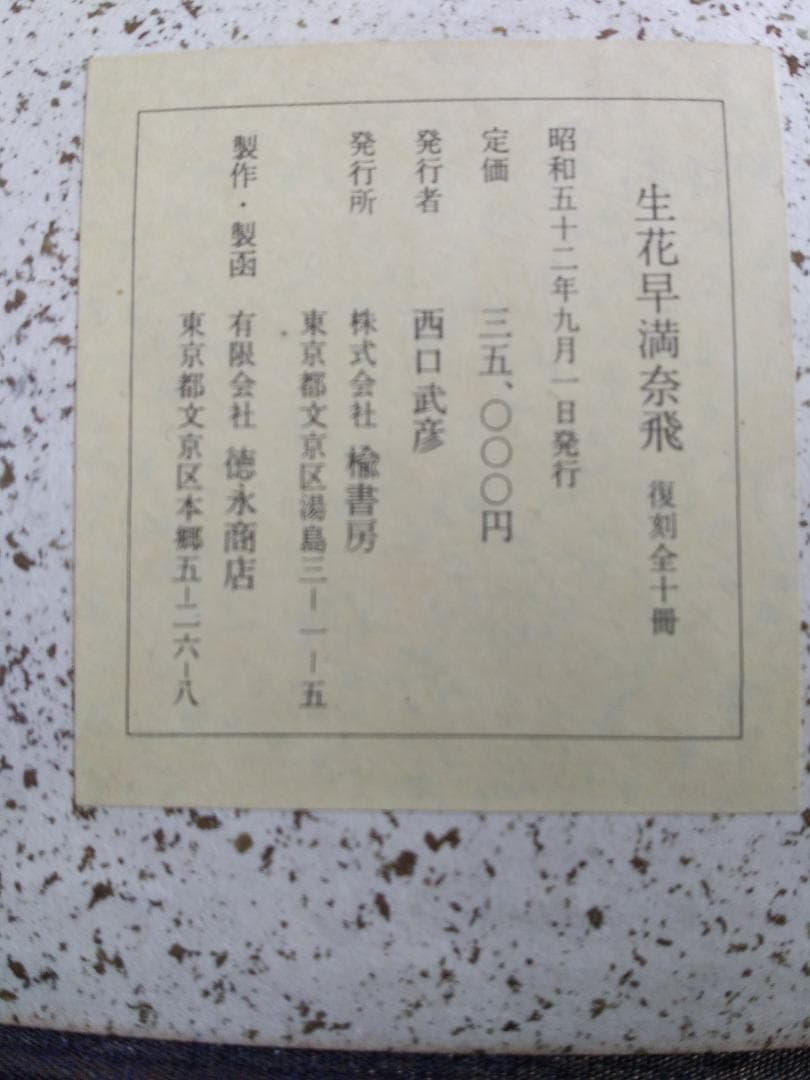 生花早満奈飛 復刻全十冊
昭和五十二年九月一日発行
定価 三五、〇〇〇円
発行者 西口武彦
発行所 株式会社 楡書房
東京都文京区湯島三-一-五
製作・製函 有限会社 徳永商店
東京都文京区本郷五-二六-八